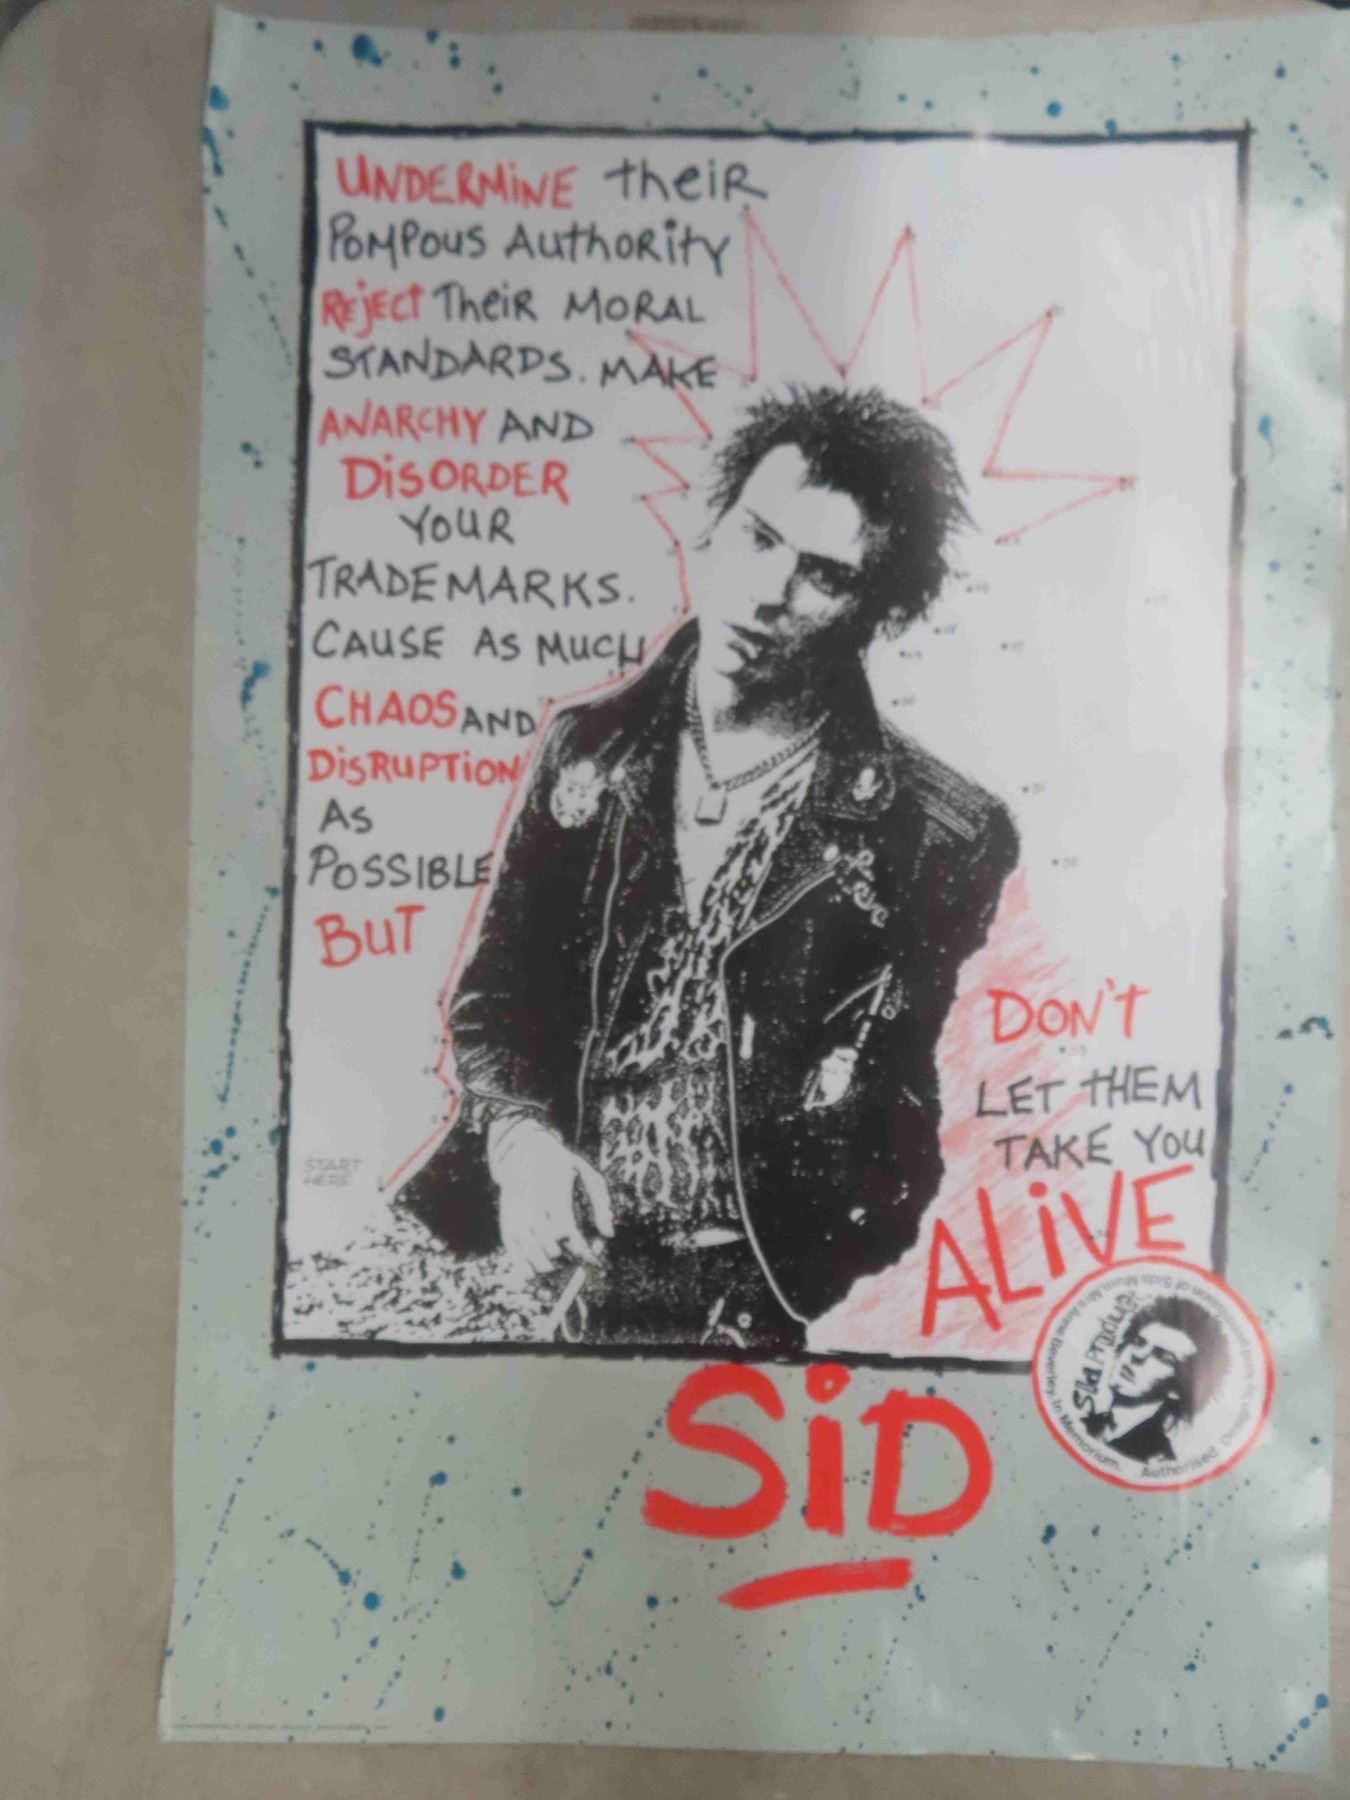 UNDERMINE their
POMPOUS AuthoRity
Reject Their MORAL
STANDARDS. MAKE
ANARCHY AND
DiSORDER
YOUR
TRADEMARKS.
CAUSE AS MUCH
CHAOS AND
DiSRUPTiON
AS
POSSIBLE
BUT
DON'T
LET tHEM
TAKE YOU
ALiVE
START
HERE
SiD
Sid Product
Authorised Design by kind permission of Sids Mum, Mrs Anne Beverley. In Memorium.